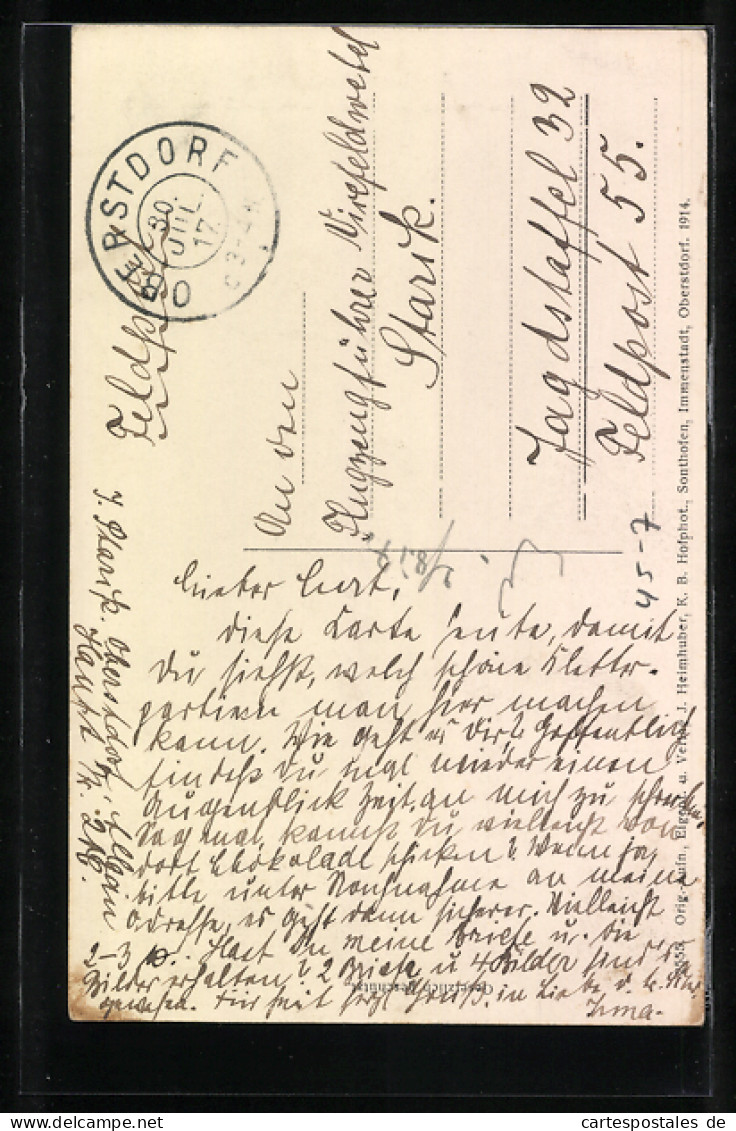 Feldpost
OBERSTDORF
30
JUL.
17.
An den
Flugzeugführer Vizefeldwebel
Starik.
Jagdstaffel 32
Feldpost 55.
45-7
Lieber Curt,
diese Karte heute, damit
Du siehst, welch schöne Kletter-
partieen man hier machen
kann. Wie geht es Dir? Hoffentlich
findest Du mal wieder einen
Augenblick Zeit, an mich zu schreiben.
Sag mal, kannst Du vielleicht von
dort Chokolade schicken? Wenn ja,
bitte unter Nachnahme an meine
Adresse, es geht dann sicherer. Vielleicht
2-3 Hast Du meine Briefe u. die
Bilder erhalten? 2 Briefe u 4 Bilder sind es
gewesen. Für heut herzl. Grüße in Liebe d.
Irma.
Starik. Oberstdorf, Allgäu
Haupt
Orig.-Aufn., Eigent. u. Verlag J. Heimhuber, K. B. Hofphot., Sonthofen, Immenstadt, Oberstdorf. 1914.
Gesetzlich geschützt
cartespostales de